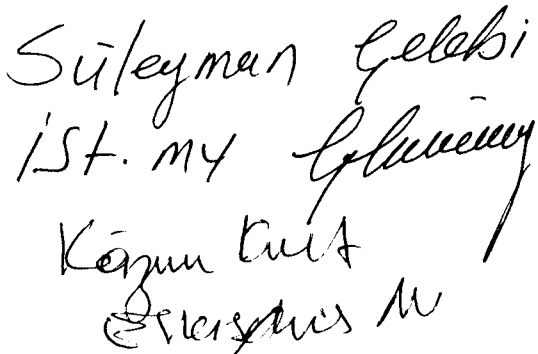 Süleyman Çelebi
İst. MV
Kazım Kurt
Eskişehir M